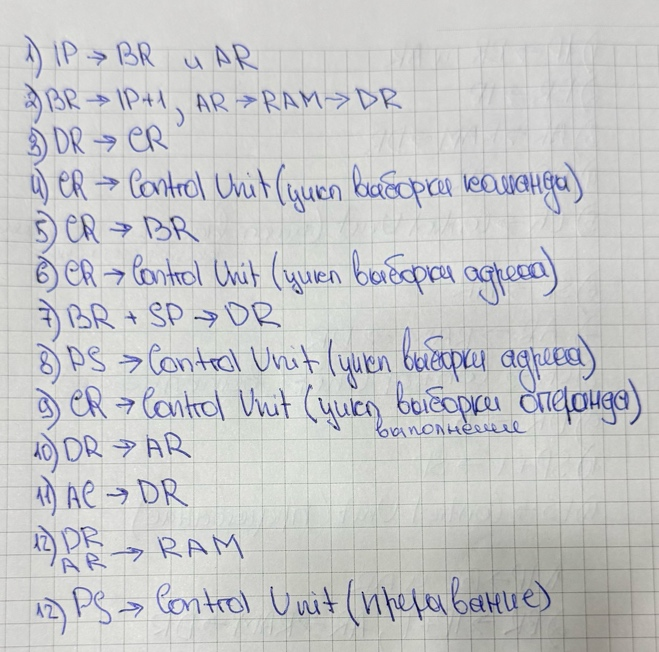 1) IP → BR и AR
2) BR → IP+1, AR → RAM → DR
3) DR → CR
4) CR → Control Unit (цикл выборки команда)
5) CR → BR
6) CR → Control Unit (цикл выборки адреса)
7) BR + SP → DR
8) PS → Control Unit (цикл выборки адреса)
9) CR → Control Unit (цикл выборки операнда)
выполнение
10) DR → AR
11) AC → DR
12) DR
AR → RAM
12) PS → Control Unit (прерывание)